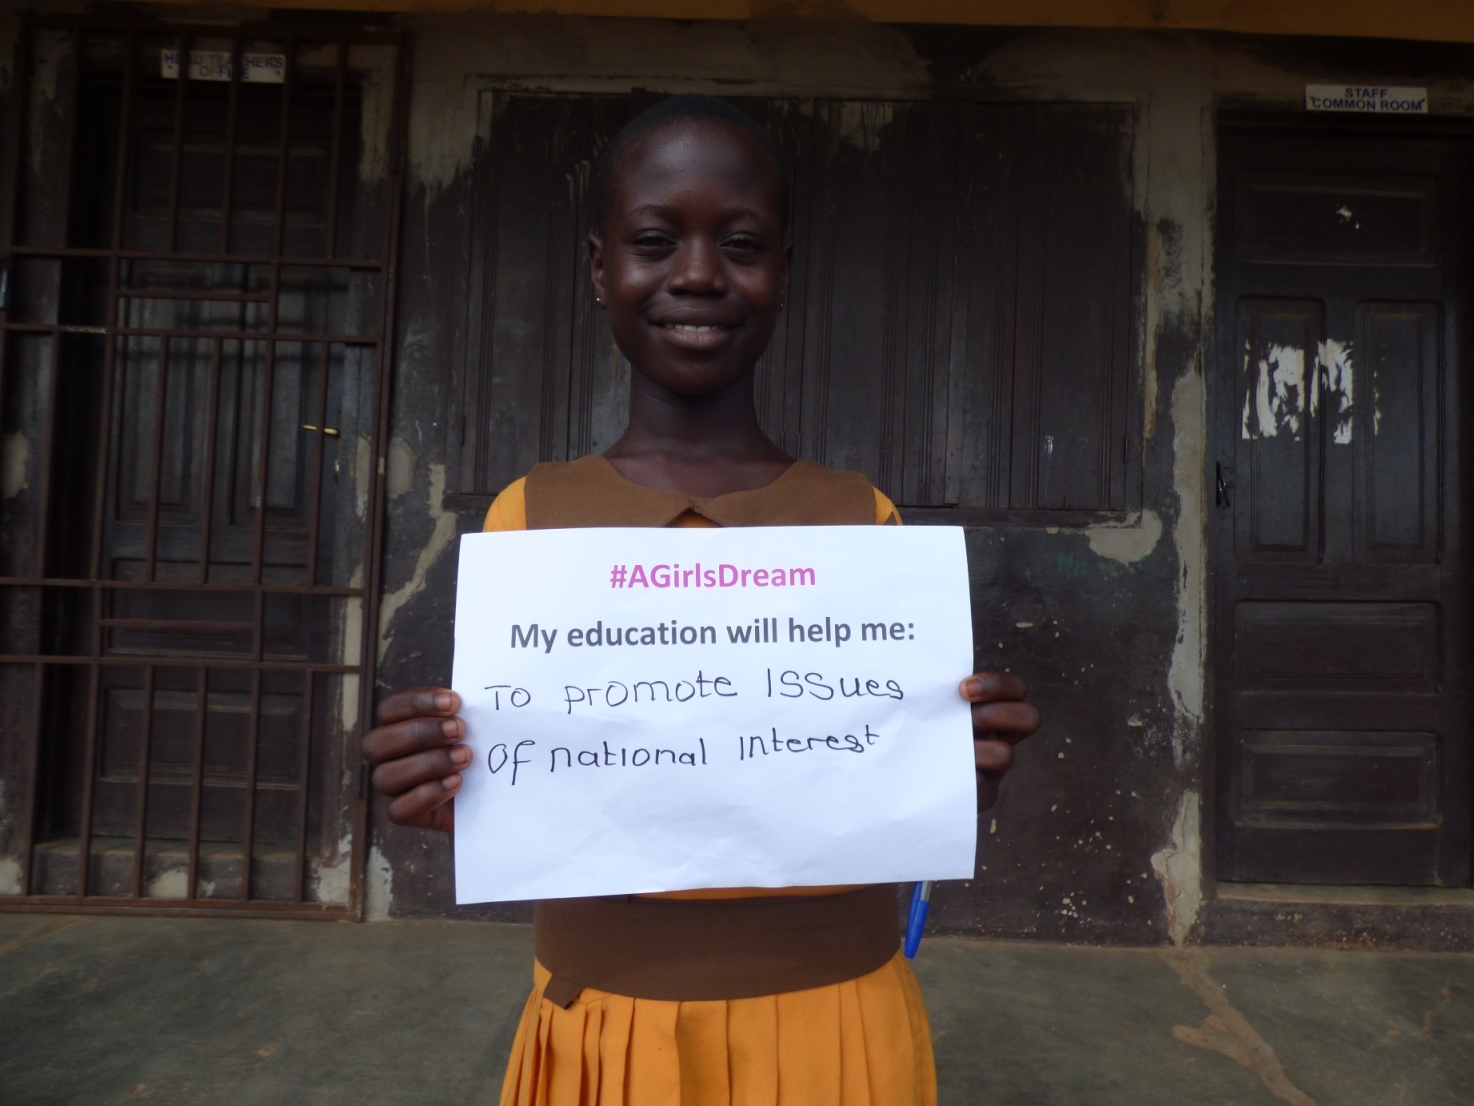 HEAD TEACHER'S
OFFICE
STAFF
COMMON ROOM
#AGirlsDream
My education will help me:
To promote Issues
Of national Interest